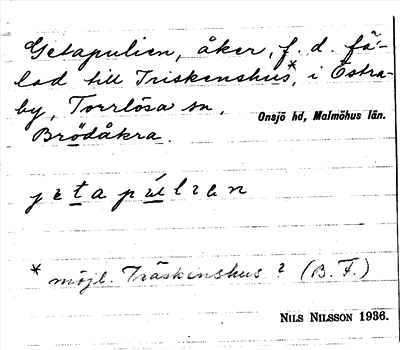 Getapulien, åker, f. d. fä-
lad till Triskenshus*, i Östra-
by, Torrlösa sn,
Onsjö hd, Malmöhus län.
Brödåkra.
* möjl. Träskenshus? (B. F.)
NILS NILSSON 1936.